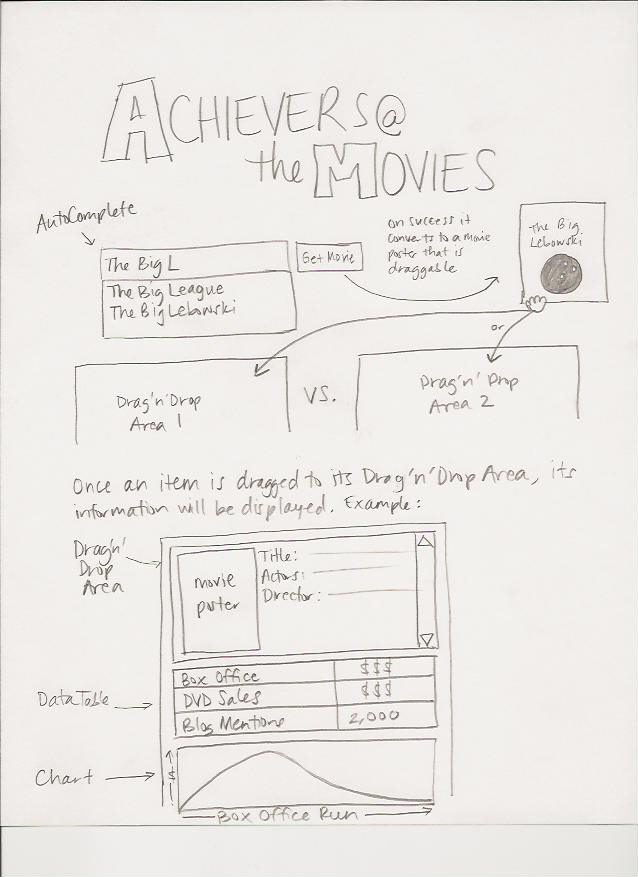 ACHIEVERS@
the MOVIES
AutoComplete
The Big L
Get Movie
The Big League
The Big Lebowski
on success it
converts to a movie
poster that is
draggable
The Big
Lebowski
or
Drag'n'Drop
Area 1
VS.
Drag'n'Drop
Area 2
Once an item is dragged to its Drag'n'Drop Area, its
information will be displayed. Example:
Drag'n'
Drop
Area
movie
poster
Title:
Actors:
Director:
DataTable
Box Office $$$
DVD Sales $$$
Blog Mentions 2,000
Chart
$
Box Office Run